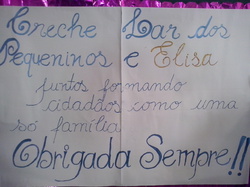 Creche Lar dos
Pequeninos e Elisa
juntos formando
cidadãos como uma
só família
Obrigada Sempre!!